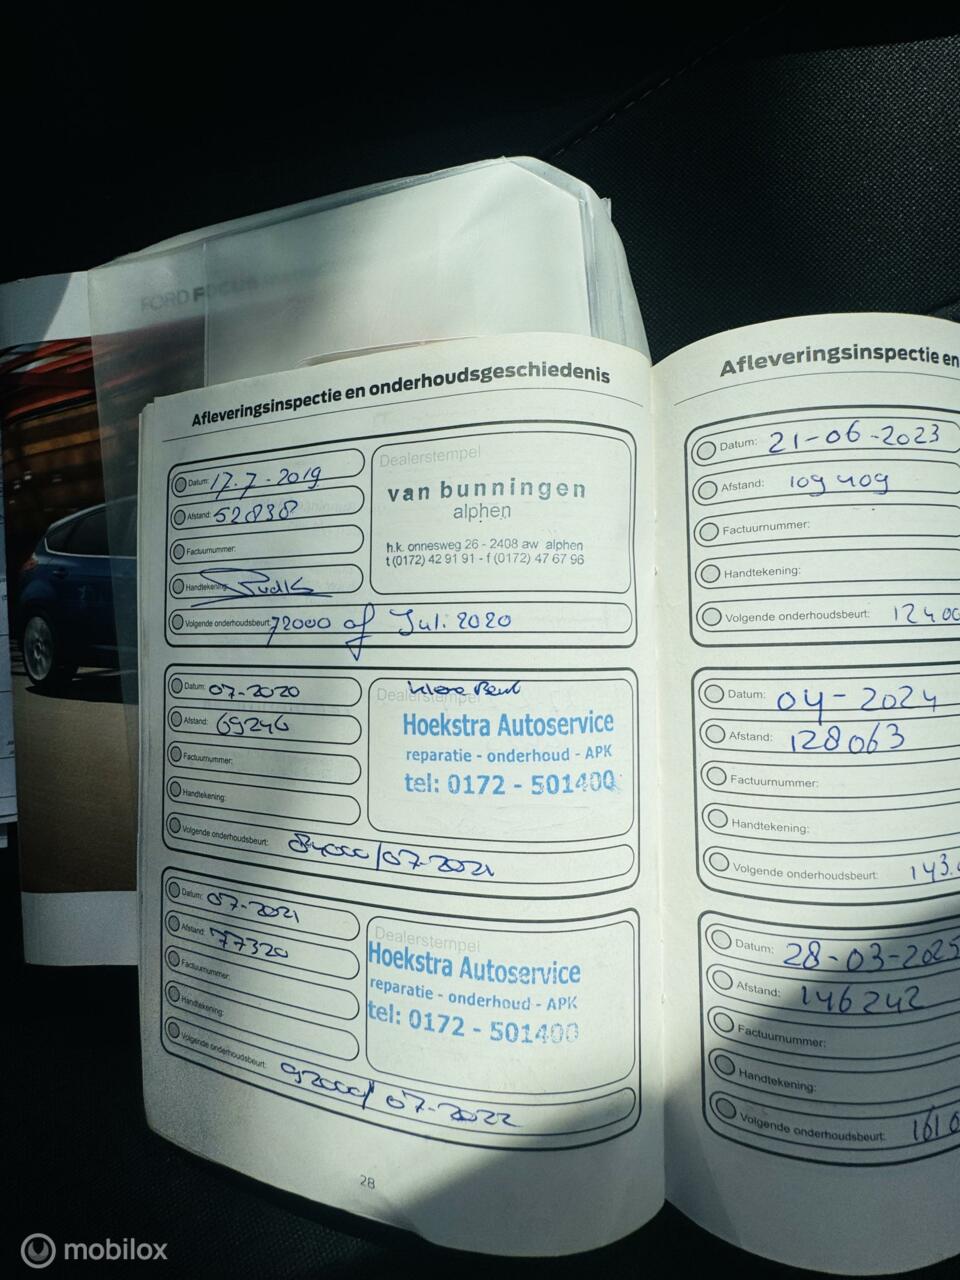 FORD FOCUS
Afleveringsinspectie en onderhoudsgeschiedenis
Datum: 17-7-2019
Afstand: 52838
Factuurnummer:
Handtekening:
Volgende onderhoudsbeurt: 72000 of Juli 2020
Dealerstempel
van bunningen
alphen
h.k. onnesweg 26 - 2408 aw alphen
t (0172) 42 91 91 - f (0172) 47 67 96
Datum: 07-2020
Afstand: 69246
Factuurnummer:
Handtekening:
Volgende onderhoudsbeurt: 84000/07-2021
Dealerstempel
Hoekstra Autoservice
reparatie - onderhoud - APK
tel: 0172 - 501400
Datum: 07-2021
Afstand: 77320
Factuurnummer:
Handtekening:
Volgende onderhoudsbeurt: 92000/07-2022
Dealerstempel
Hoekstra Autoservice
reparatie - onderhoud - APK
tel: 0172 - 501400
28
Afleveringsinspectie en
Datum: 21-06-2023
Afstand: 109409
Factuurnummer:
Handtekening:
Volgende onderhoudsbeurt: 12400
Datum: 04-2024
Afstand: 128063
Factuurnummer:
Handtekening:
Volgende onderhoudsbeurt: 143.
Datum: 28-03-2025
Afstand: 146242
Factuurnummer:
Handtekening:
Volgende onderhoudsbeurt: 1610
mobilox